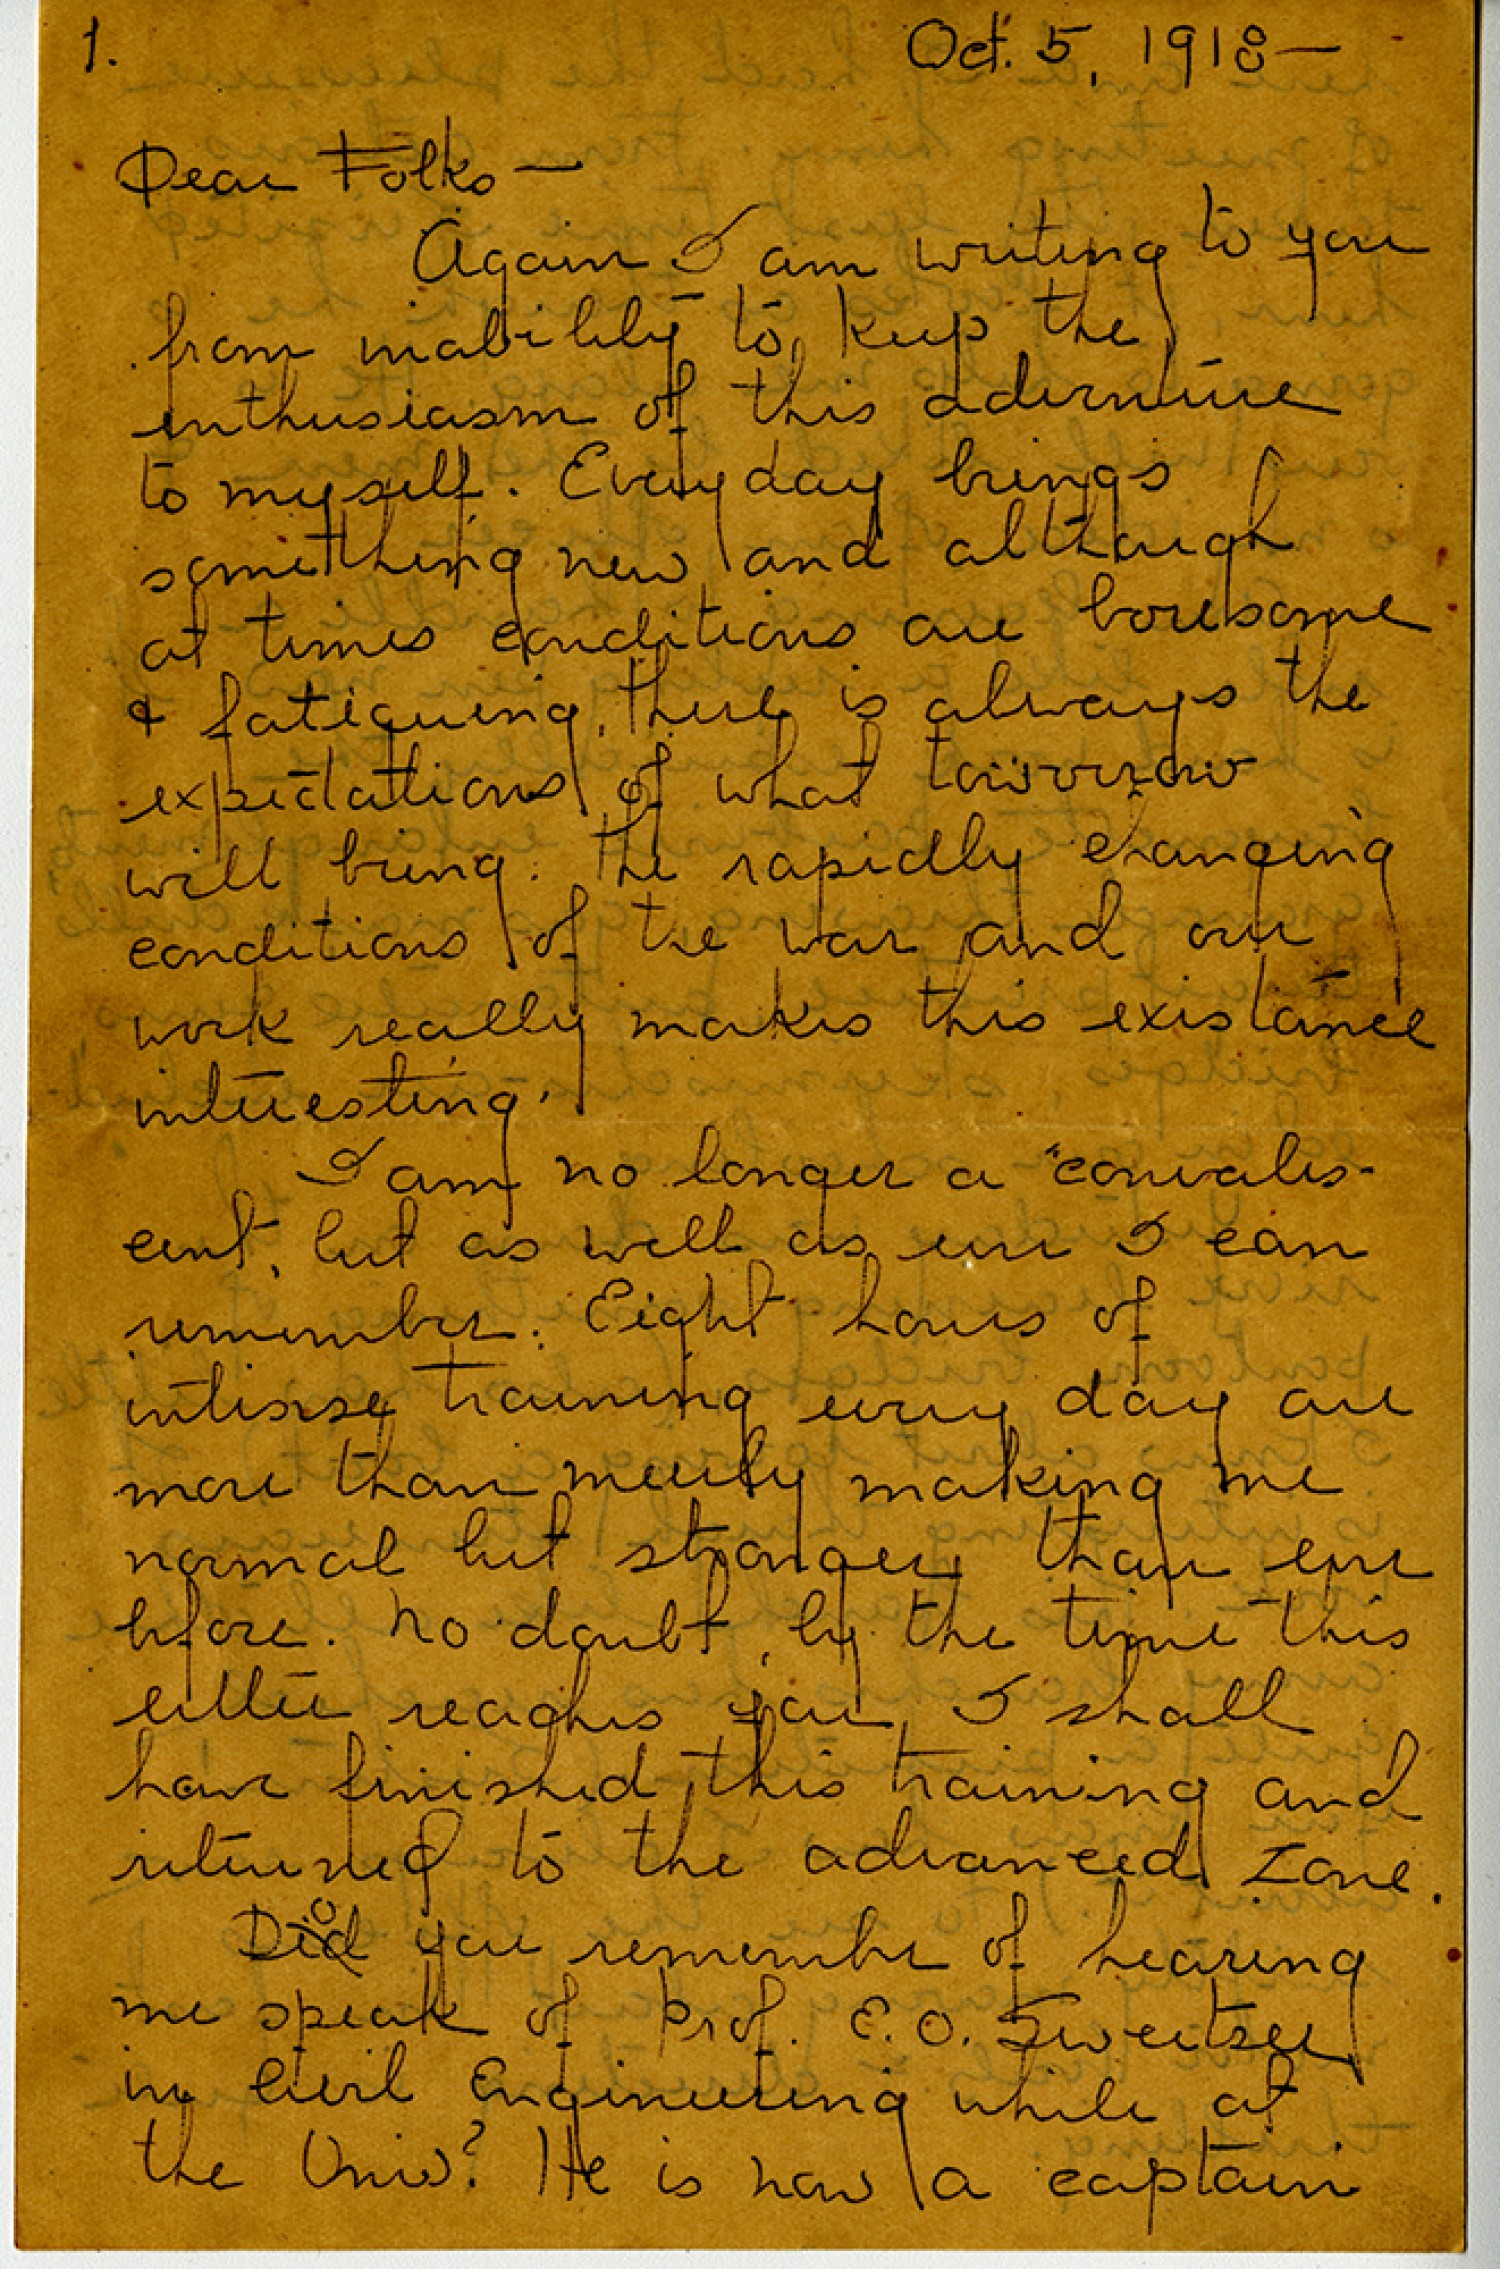 1. Oct. 5, 1918—
Dear Folks —
Again I am writing to you
from inability to keep the
enthusiasm of this adventure
to myself. Every day brings
something new and although
at times conditions are boresome
& fatiguing, there is always the
expectations of what tomorrow
will bring. The rapidly changing
conditions of the war and our
work really makes this existance
interesting.
I am no longer a "convales-
cent, but as well as ever I can
remember. Eight hours of
intense training every day are
more than merely making me
normal but stronger than ever
before. No doubt, by the time this
letter reaches you, I shall
have finished this training and
returned to the advanced zone.
Do you remember of hearing
me speak of Prof. E. O. Sweitser
in Civil Engineering while at
the Univ? He is now a captain